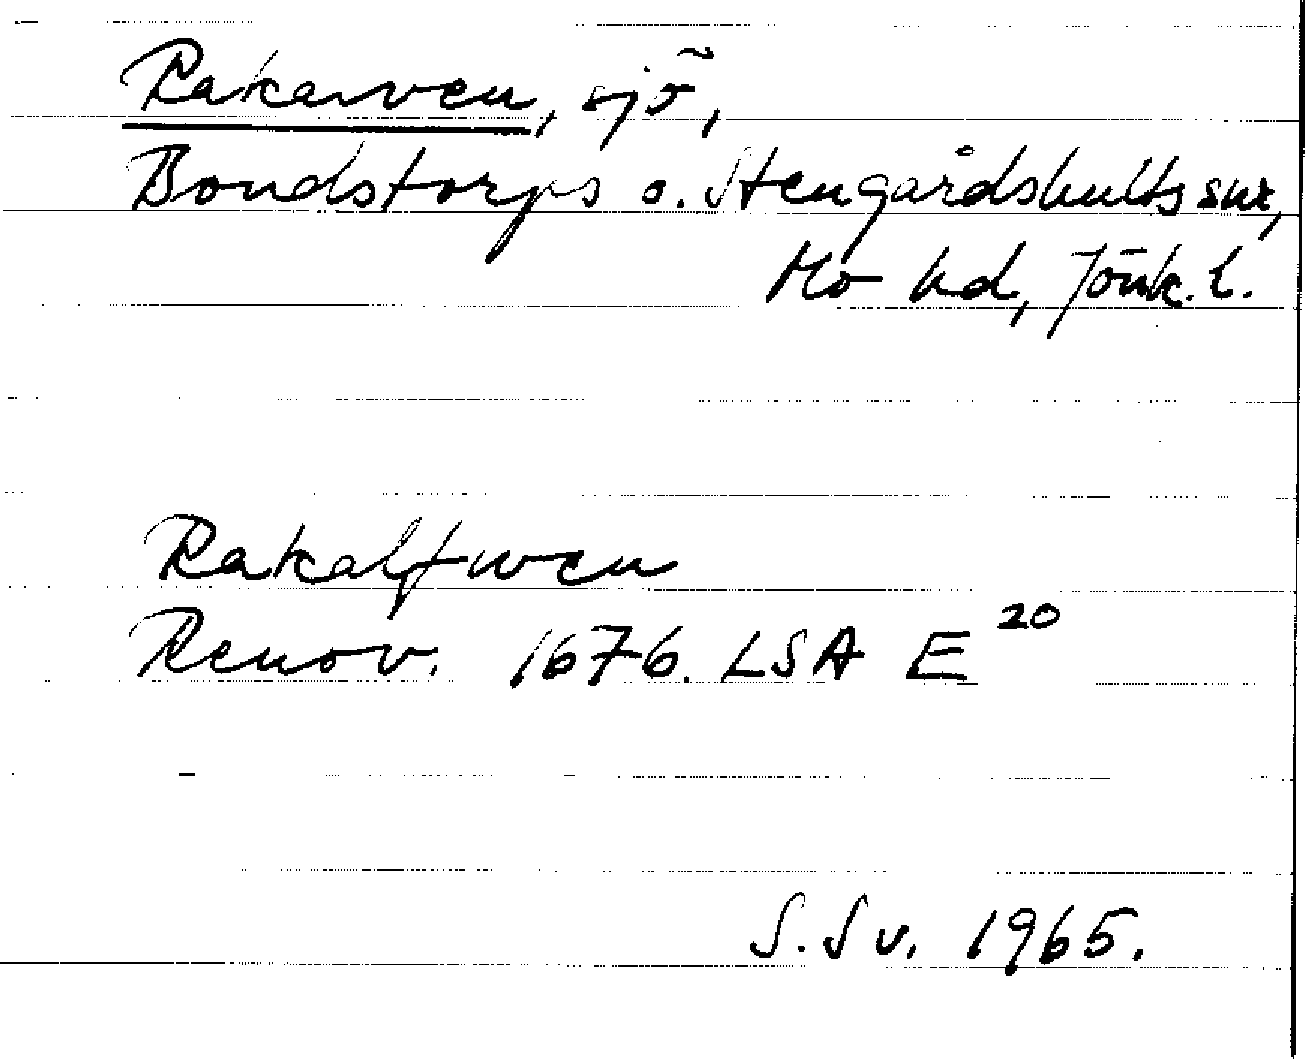 Rakarven, sjö,
Bondstorps o. Stengårdshults snr,
Mo hd, Jönk. l.
Rakalfwen
Renov. 1676. LSA E 20
S. Sv. 1965.